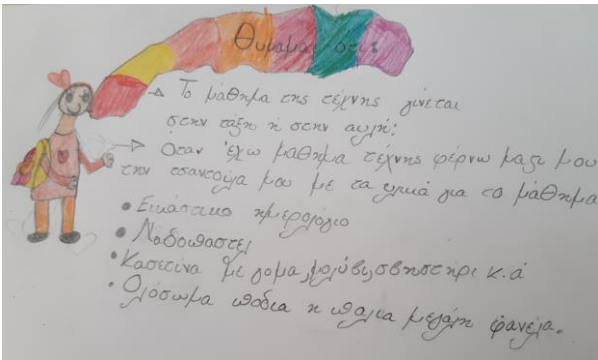 Θυμάμαι ότι:
Το μάθημα της τέχνης γίνεται
στην τάξη ή στην αυλή:
Όταν έχω μάθημα τέχνης φέρνω μαζί μου
την τσαντούλα μου με τα υλικά για το μάθημα
• Εικάστικο ημερολόγιο
• Λαδοπαστελ
• Κασετίνα με γομα, μολύβι, σβηστήρι κ.ά
• Ολόσωμα ποδια η παλια μεγάλη φανέλα.